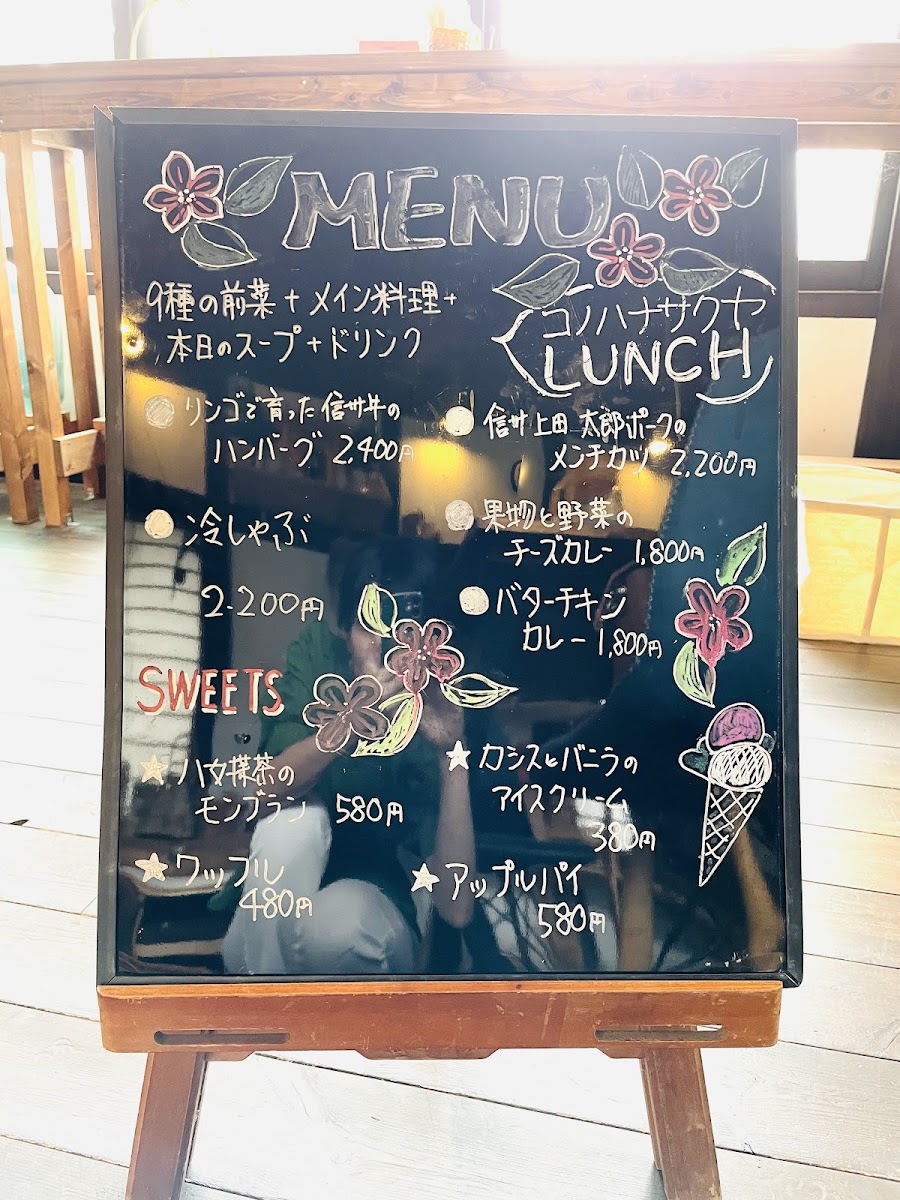 MENU
9種の前菜+メイン料理+
本日のスープ+ドリンク
コノハナサクヤ
LUNCH
リンゴで育った信州牛の
ハンバーグ 2,400円
信州上田 太郎ポークの
メンチカツ 2,200円
冷しゃぶ
2.200円
果物と野菜の
チーズカレー 1,800円
バターチキン
カレー 1,800円
SWEETS
八女抹茶の
モンブラン 580円
カシスとバニラの
アイスクリーム
380円
ワッフル
480円
アップルパイ
580円